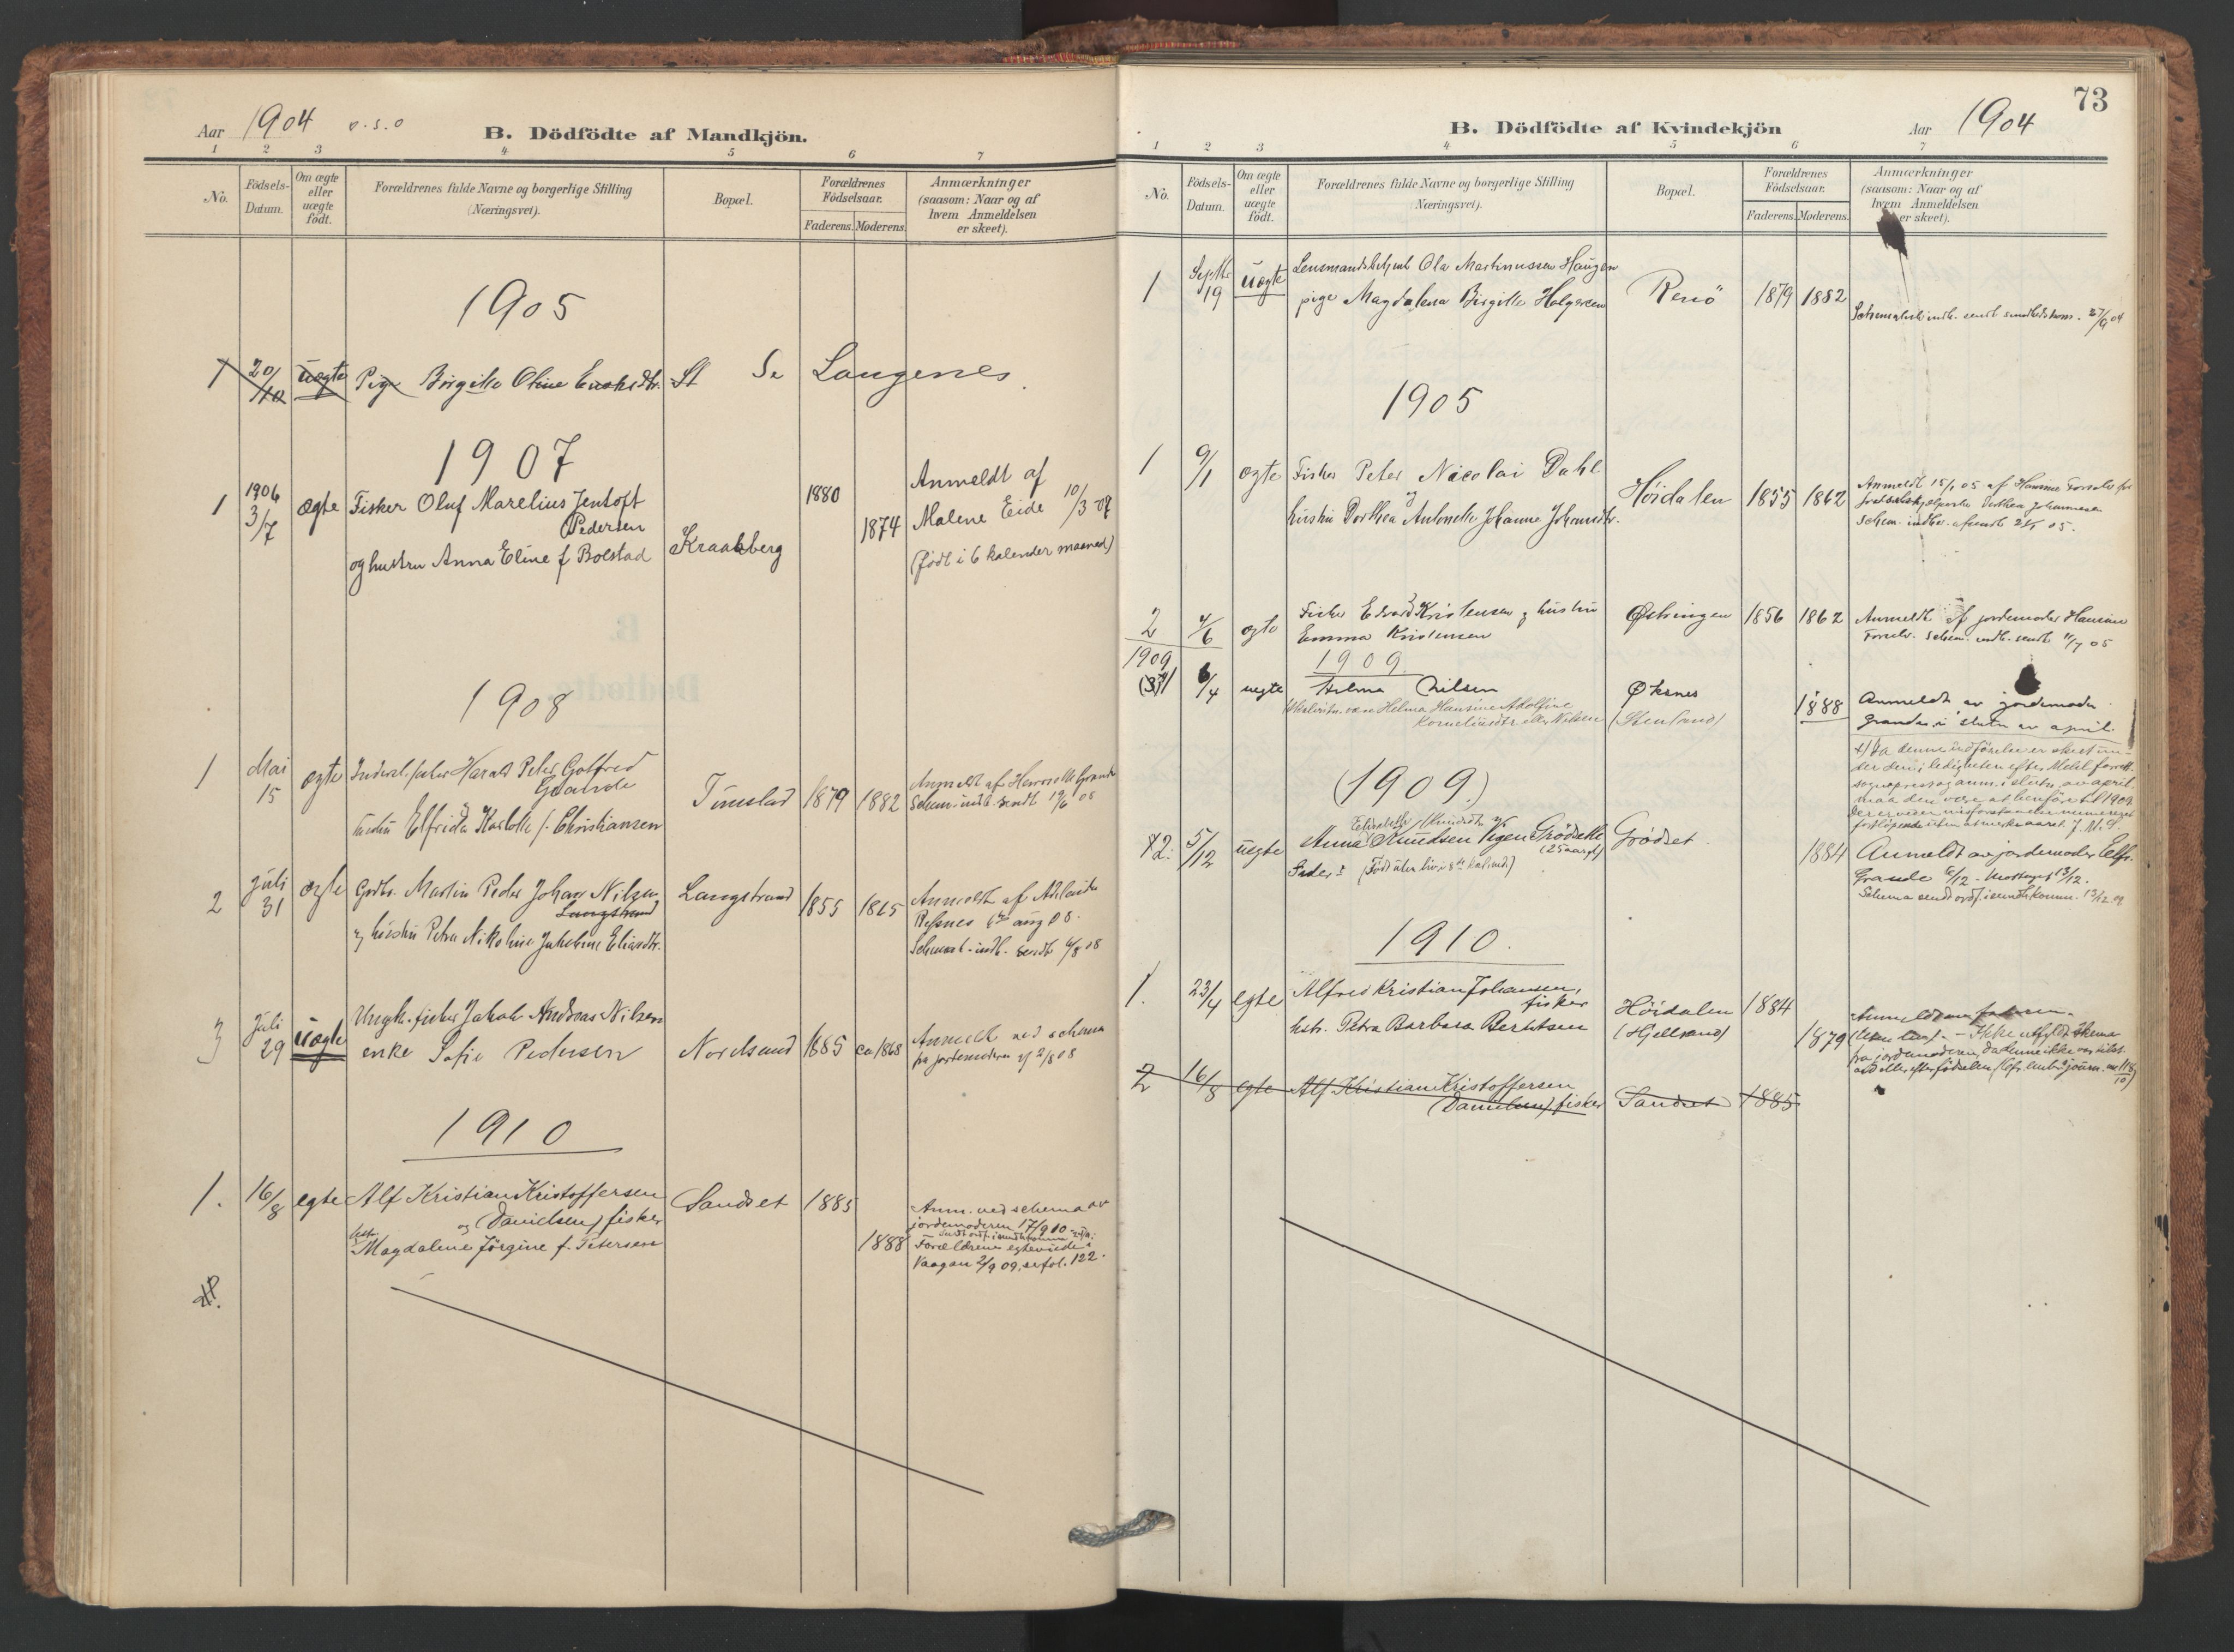 Aar 1904 o.s.o
B. Dödfödte af Mandkjön.
1 2 3 4 5 6 7
No.
Födsels-Datum.
Om ægte eller uægte födt.
Forældrenes fulde Navne og borgerlige Stilling
(Næringsvei).
Bopæl.
Forældrenes Födselsaar.
Faderens. Moderens.
Anmærkninger
(saasom: Naar og af
hvem Anmeldelsen
er skeet).
1905
1 20/10 uægte Pige Birgitte Oline St Se Langenes
1907
1 1906 3/7 ægte Fisker Oluf Marelius Jentoft
Pedersen
og hustru Anna Eline f Bolstad
Kraakberg 1880 1874
Anmeldt af
Malene Eide 10/3 07
(født i 6 kalender maaned)
1908
1 Mai 15 ægte Harald Peter Gotfred
Grande
hustru Elfrida Karlotte f. Christiansen
Tunstad 1879 1882
Anmeldt af Grande
Schem. indb. sendt 19/6 08
2 Juli 31 ægte Gbr. Martin Peder Johan Nilsen
Langstrand
og hustru Petra Nikoline Jakobine Eliasdtr.
Langstrand 1855 1865
Anmeldt af Adelaide
aug 08.
Schemat. indb. sendt 4/8 08
3 Juli 29 uægte Ungk. fisker Jakob Andreas Nilsen
enke Sofie Pedersen
Nordsand 1885 ca 1868
Anmeldt ved schema
fra jordemoderen 2/8 08
1910
1. 16/8 egte Alf Kristian Kristoffersen
(Danielsen) fisker
og hstr. Magdalene Jörgine f. Petersen
Sandset 1885 1888
Anm. ved schema av
jordemoderen 17/9 10
Forældrene egteviede i
Vaagan 2/9 09, se fol. 122.
73
B. Dödfödte af Kvindekjön
Aar 1904
1 2 3 4 5 6 7
No.
Födsels-Datum.
Om ægte eller uægte födt.
Forældrenes fulde Navne og borgerlige Stilling
(Næringsvei).
Bopæl.
Forældrenes Födselsaar.
Faderens. Moderens.
Anmærkninger
(saasom: Naar og af
hvem Anmeldelsen
er skeet).
1 Septbr 19 uægte Lensmandsbetjent Ola Martinussen Haugen
pige Magdalena Birgitte Holgersen
Renö 1879 1882
indb. sendt sundhedskom. 27/9 04
1905
1 9/1 ægte Fisker Peter Nicolai Dahl
og
hustru Dorthea Antonette Johanne
Høidalen 1855 1862
Anmeldt 15/1 05 af Hansine
Dorthea Johannesen
Schem. indb. afsendt 05.
2 4/6 ægte Fisker Edvard Kristensen og hustru
Emma Kristensen
Østringen 1856 1862
Anmeldt af jordemoder Hansine
Schem. indb. sendt 11/7 05
1909
1909
(3) 1 6/4 uegte Helma Nilsen
(Skal være Helma Hansine Adolfine
Korneliusdtr eller Nilsen)
Øksnes
(Stensand)
1888
Anmeldt av jordemoder
Grande i slutn av april.
Da denne indförelse er skeet un-
der den i ledigheten efter
sogneprest og anm. i slutn. av april,
maa den være at henföre til 1909.
(1909.)
2. 5/12 uegte Elisabeth Knudsdtr
Anna Knudsen Vigen Grödset
(25 aar gl)
(Född uten liv i 8de kal.md.)
Grödset 1884
Anmeldt av jordemoder
Grande 6/12. Mottaget 13/12.
Schema sendt ordf. i sundh.komm. 13/12 09
1910.
1. 23/4 egte Alfred Kristian Johansen,
fisker
hstr. Petra Barbara Berntsen
Höidalen
(Hjellsand)
1884 1879
Anmeldt av faderen.
Ikke utfyldt skema
fra jordemoderen, da denne ikke var tilst.
ved eller efter födselen
2 16/8 egte Alf Kristian Kristoffersen
(Danielsen) fisker Sandset 1885